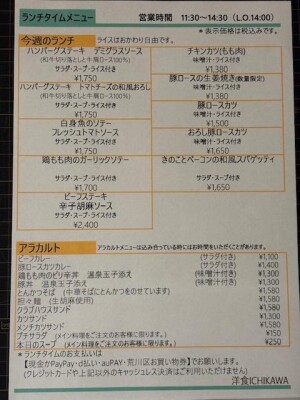 ランチタイムメニュー
営業時間 11:30~14:30 (L.O.14:00)
*表示価格は税込みです。
今週のランチ ライスはおかわり自由です。
ハンバーグステーキ デミグラスソース
(和牛切り落としと牛肩ロース100%)
サラダ・スープ・ライス付き
¥1,750
ハンバーグステーキ トマトチーズの和風おろし
(和牛切り落としと牛肩ロース100%)
サラダ・スープ・ライス付き
¥1,750
白身魚のソテー
フレッシュトマトソース
サラダ・スープ・ライス付き
¥1,750
鶏もも肉のガーリックソテー
サラダ・スープ・ライス付き
¥1,700
ビーフステーキ
辛子胡麻ソース
サラダ・スープ・ライス付き
¥2,400
チキンカツ(もも肉)
味噌汁・ライス付き
¥1,380
豚ロースの生姜焼き(数量限定)
味噌汁・ライス付き
¥1,380
豚ロースカツ
味噌汁・ライス付き
¥1,500
おろし豚ロースカツ
味噌汁・ライス付き
¥1,650
きのことベーコンの和風スパゲッティ
サラダ・スープ付き
¥1,650
アラカルト
アラカルトメニューは込み合っている時にはお時間をいただくことがあります。
ビーフカレー (サラダ付き) ¥1,100
豚ロースカツカレー (サラダ付き) ¥1,400
鶏もも肉のピリ辛丼 温泉玉子添え (味噌汁付き) ¥1,300
豚丼 温泉玉子添え (味噌汁付き) ¥1,300
とんかつそば (中華そばにとんかつをのせています) ¥1,580
担々麺 (生胡麻使用) ¥1,580
クラブハウスサンド ¥1,580
カツサンド ¥1,300
メンチカツサンド ¥1,580
プチサラダ (メイン料理をご注文のお客様に限ります。) ¥150
本日のスープ (メイン料理をご注文のお客様に限ります。) ¥250
*ランチタイムのお支払いは
【現金かPayPay・d払い・auPAY・荒川区お買い物券】でお願いします。
(クレジットカードや上記以外のキャッシュレス決済はご利用いただけません)
洋食ICHIKAWA